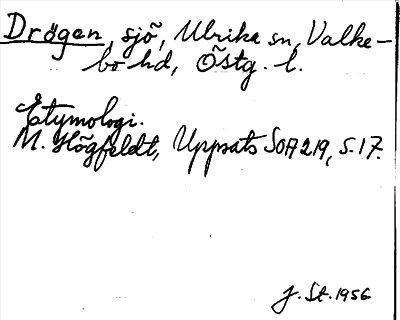 Drögen, sjö, Ulrika sn, Valke-
bo hd, Östg. l.
Etymologi.
M. Högfeldt, Uppsats SOA 219, s. 17.
J. St. 1956